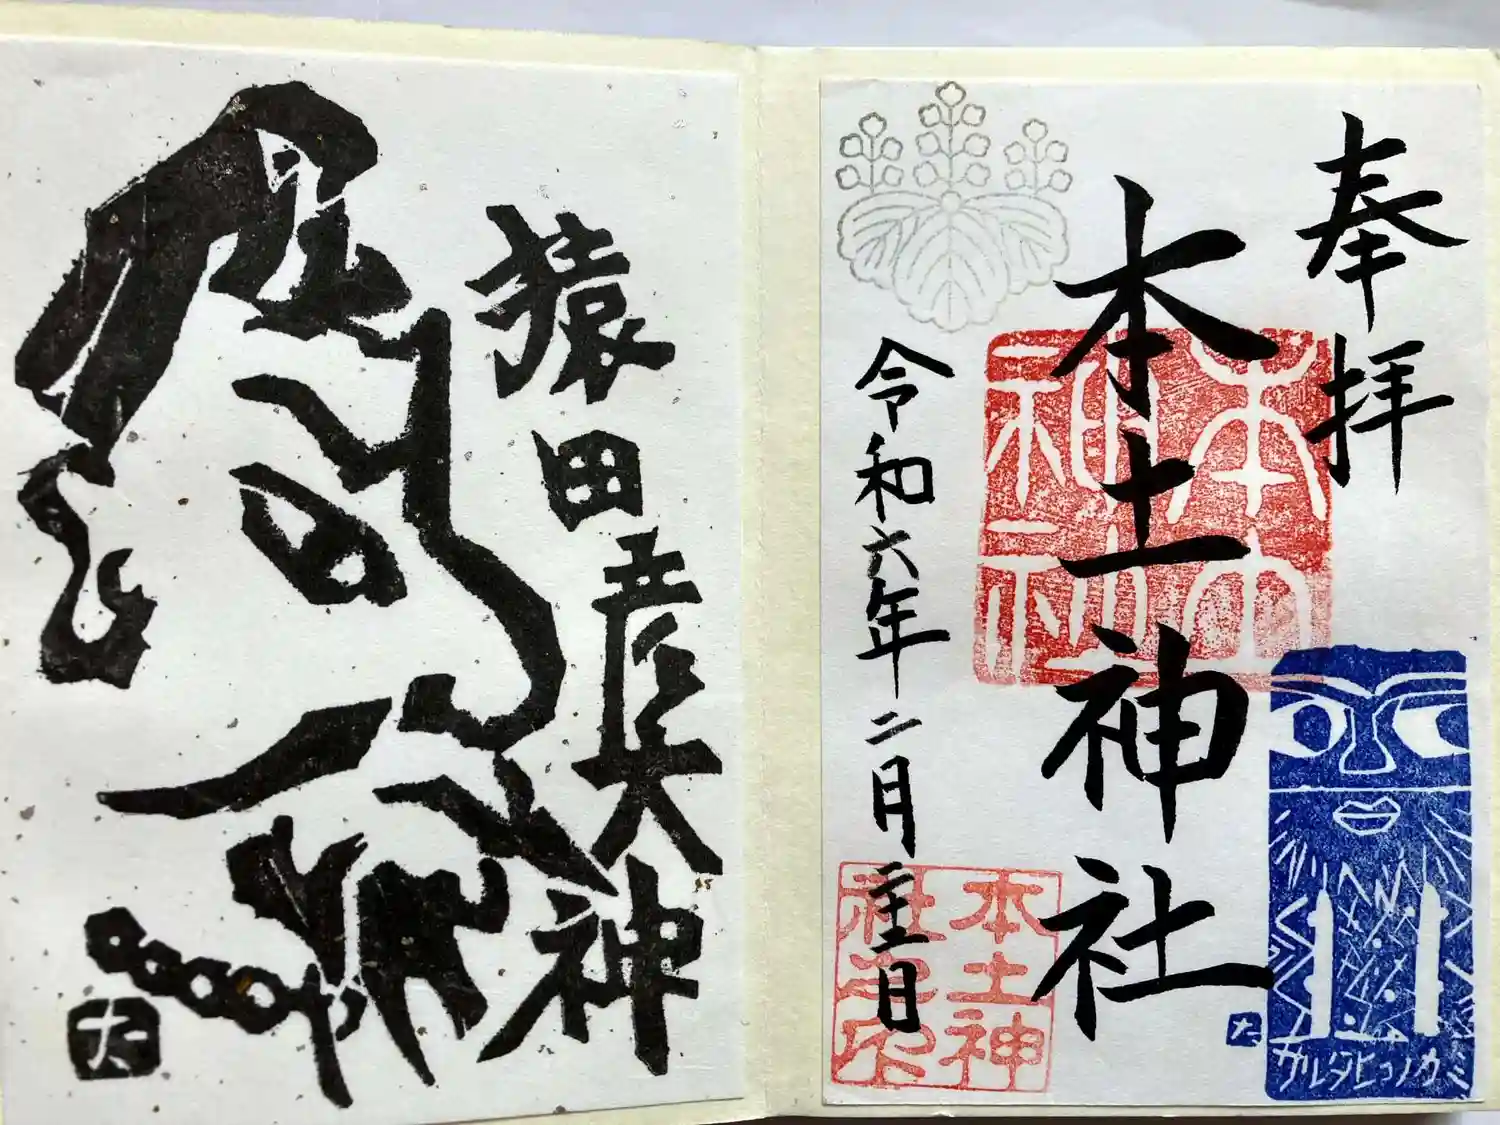 奉拝
本土神社
本土神社
令和六年二月二十二日
本土神
社之印
サルタヒコノカミ
た
猿田彦大神
た